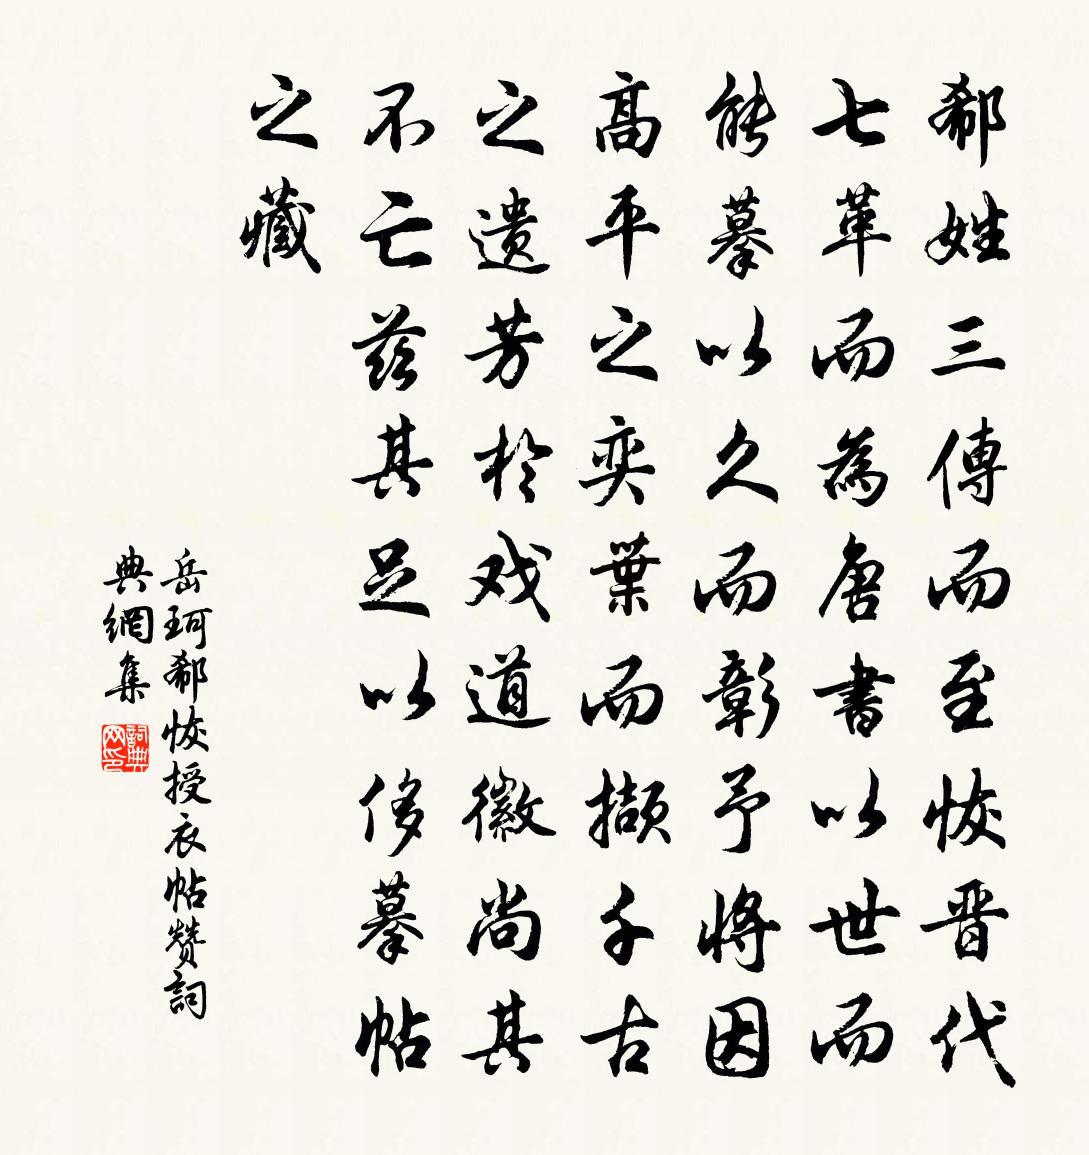 郗姓三傳而至恢晉代
七革而為唐書以世而
能摹以久而彰予將因
高平之奕葉而擷千古
之遺芳於戏道徽尚其
不亡兹其足以侈摹帖
之藏
岳珂郗恢授衣帖赞詞
典網集
詞典网印